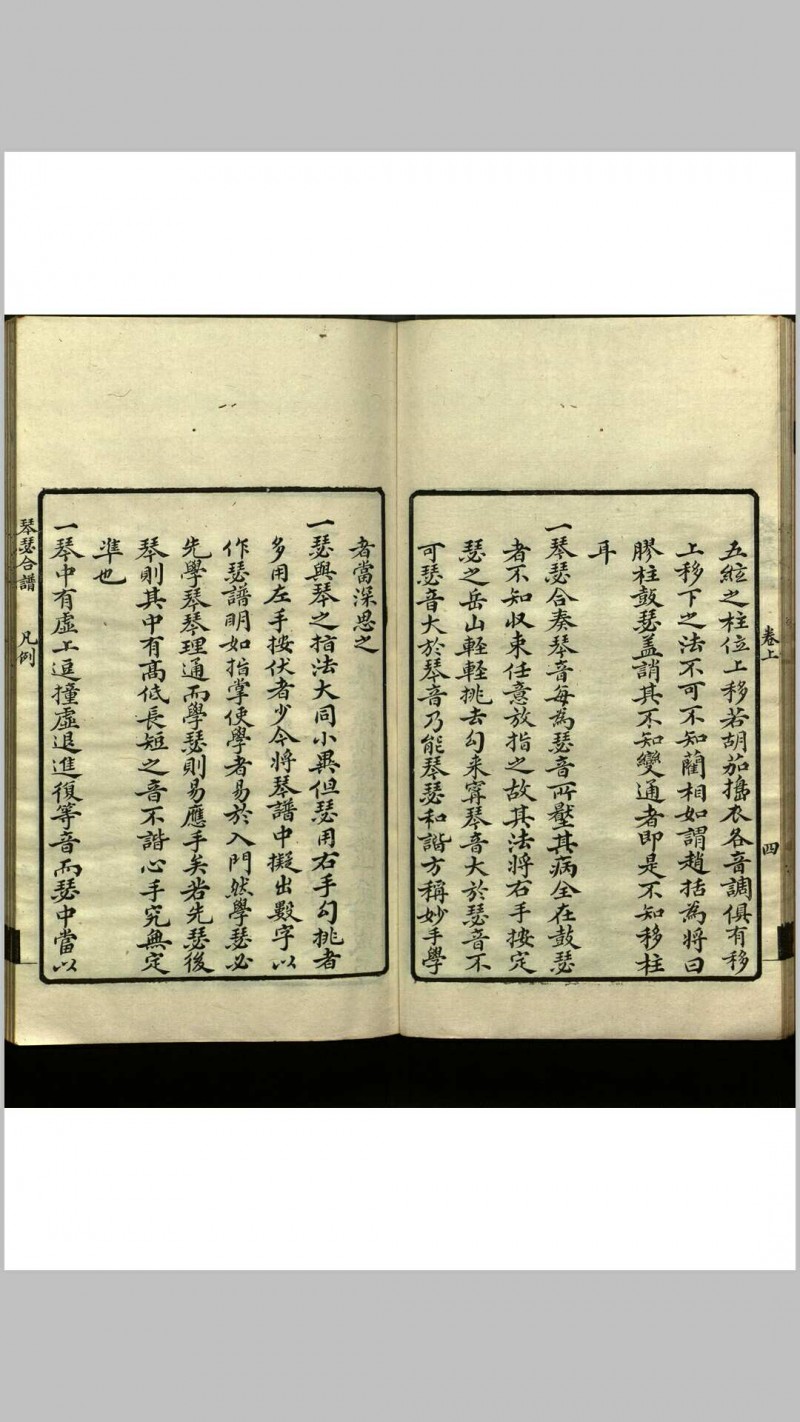 卷上
四
五絃之柱位上移若胡茄搗衣各音調俱有移
上移下之法不可不知藺相如謂趙括為將曰
膠柱鼓瑟蓋誚其不知變通者即是不知移柱
耳
一琴瑟合奏琴音每為瑟音所壓其病全在鼓瑟
者不知収束任意放指之故其法將右手按定
瑟之岳山輕輕挑去勾来寧琴音大於瑟音不
可瑟音大於琴音乃能琴瑟和諧方稱妙手學
者當深思之
一瑟與琴之指法大同小異但瑟用右手勾挑者
多用左手按伏者少今將琴譜中擬出數字以
作瑟譜明如指掌使學者易於入門然學瑟必
先學琴琴理通而學瑟則易應手矣若先瑟後
琴則其中有高低長短之音不諧心手究無定
準也
一琴中有虛上逗撞虛退進復等音而瑟中當以
琴瑟合譜
凡例